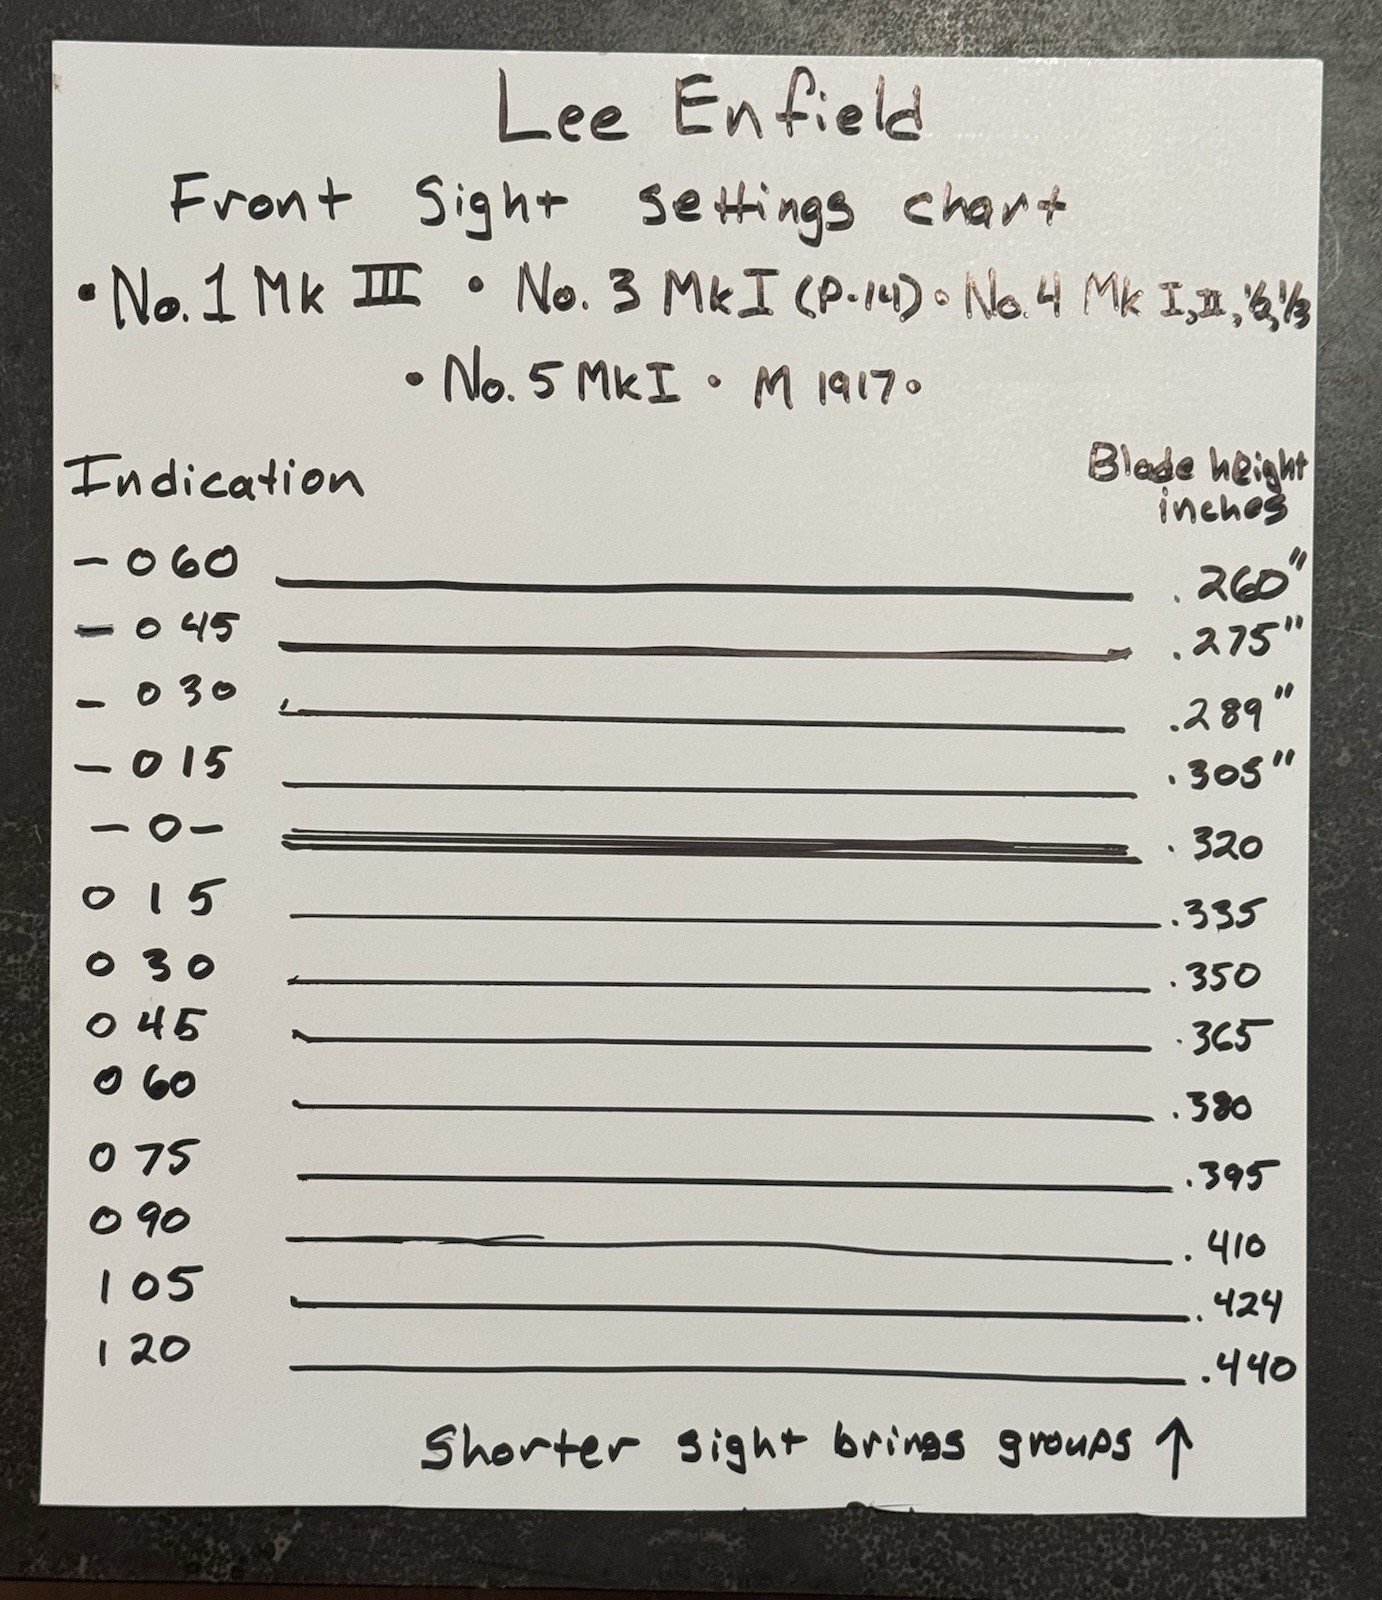 Lee Enfield
Front Sight settings chart
• No. 1 Mk III • No. 3 Mk I (P-14) • No. 4 Mk I, II, 1/2, 1/3
• No. 5 Mk I • M 1917 •
Indication Blade height inches
- 060 .260"
- 045 .275"
- 030 .289"
- 015 .305"
- 0 - .320
015 .335
030 .350
045 .365
060 .380
075 .395
090 .410
105 .424
120 .440
Shorter sight brings groups ↑